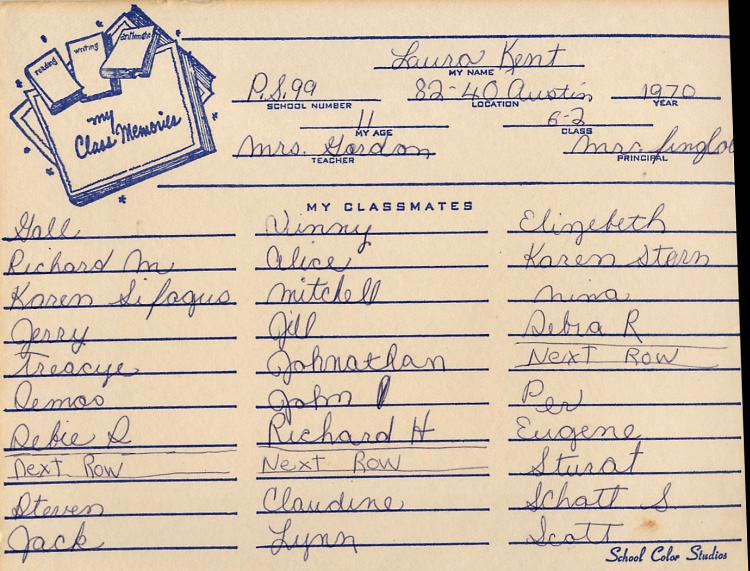 reading
writing
arithmetic
my
Class Memories
Laura Kent
MY NAME
P.S. 99 82-40 Austin 1970
SCHOOL NUMBER LOCATION YEAR
11 6-2
MY AGE CLASS
Mrs. Gordon Mrs.
TEACHER PRINCIPAL
MY CLASSMATES
Gall
Richard M
Karen Sifaqus
Jerry
Treacye
Demos
Debie D
Next Row
Steven
Jack
Vinny
Alice
Mitchell
Jill
Johnathan
John P
Richard H
Next Row
Claudine
Lynn
Elizebeth
Karen Stern
Nina
Debra R
Next Row
Per
Eugene
Sturat
Schatt S.
Scott
School Color Studios